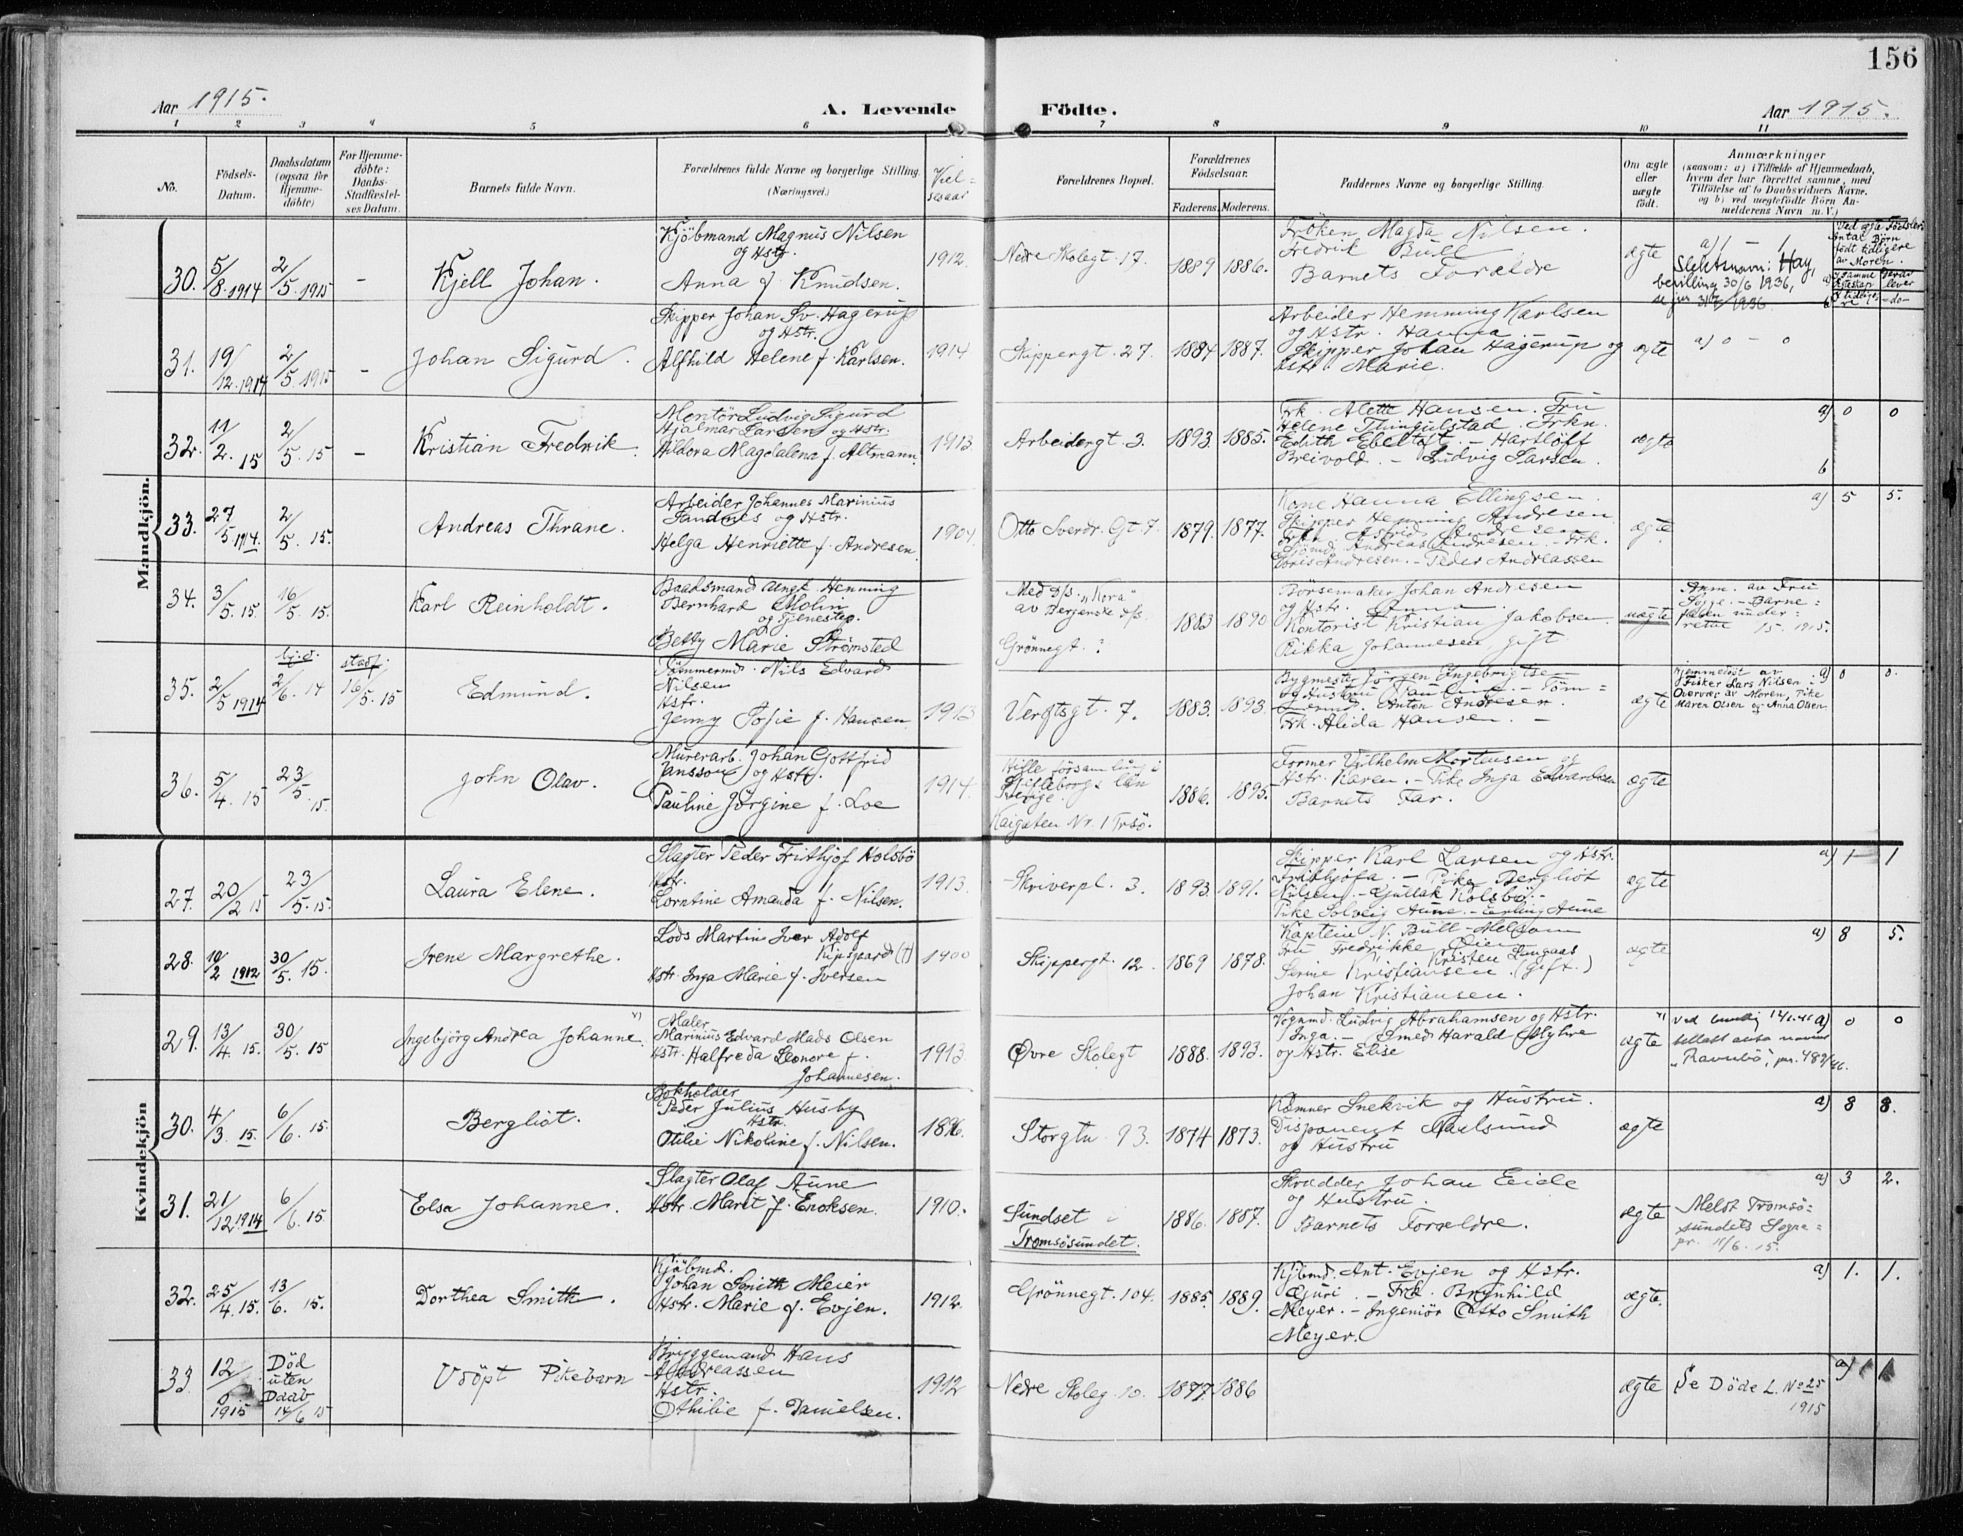 156
Aar 1915. A. Levende Födte. Aar 1915.
1 2 3 4 5 6 7 8 9 10 11
No.
Födsels-
Datum.
Daabsdatum
(ogsaa for
Hjemme-
döbte)
For Hjemme-
döbte:
Daabs-
Stadfæstel-
ses Datum.
Barnets fulde Navn.
Forældrenes fulde Navne og borgerlige Stilling
(Næringsvei.)
Viel-
sesaar
Forældrenes Bopæl.
Forældrenes
Födselsaar.
Faderens. Moderens.
Faddernes Navne og borgerlige Stilling.
Om ægte
eller
uægte
födt.
Anmærkninger
(saasom: a) i Tilfælde af Hjemmedaab,
hvem der har forrettet samme, med
Tilföielse af to Daabsvidners Navne,
og b) ved uegtefödte Börn An-
melderens Navn m. V.)
Ved ægte Födsler
Antal Börn
födt tidligere
av Moren.
Mandkjön.
30. 5/8 1914 2/5 1915 - Kjell Johan.
Kjöbmand Magnus Nilsen
og Hstr.
Anna f. Knudsen.
1912. Nedre Skolegt. 17. 1889 1886.
Fröken Magda Nilsen.
Fredrik Bull
Barnets Forældre
ægte
Slektsnavn: Hay,
bevilling 30/6 1936,
31. 19/12 1914 2/5 1915 - Johan Sigurd.
Skipper Johan Sv. Hagerup
og Hstr.
Alfhild Helene f. Karlsen.
1914 Skippergt. 27. 1884 1887.
Arbeider Hemming Karlsen
og Hstr. Hanna
Skipper Johan Hagerup og
Hstr Marie.
ægte a) 0 - 0
32. 11/2 15 2/5 15 - Kristian Fredrik.
Montör Ludvig Sigurd
Hjalmar Larsen og Hstr.
Hildora Magdalena f. Altmann.
1913. Arbeidergt 3. 1893. 1885.
Frk. Alette Hansen. Fru
Helene Thingulstad. Frkn.
Edith Ebeltoft. - Hartløff
Breivold. - Ludvig Larsen.
ægte a) 0 0
b
33. 27/5 1914. 2/5 15. Andreas Thrane.
Arbeider Johannes Marinius
Sandnes og Hstr.
Helga Henriette f. Andresen
1904 Otto Sverdr. Gt 7. 1879. 1877.
Kone Hanna Ellingsen.
Skipper Hemming Andresen
Frk. Astrid Andresen
Sjömd. Andreas Andresen - Frk.
Doris Andresen. - Peder Andreassen
ægte a) 5 5.
34. 3/5 15 16/5 15. Karl Reinholdt.
Baadsmand ungk Henning
Bernhard Molin
og tjenestep.
Betty Marie Strömsted
Med D/s. "Nora"
av Bergenske D/s.
Grönnegt. ?
1883 1890
Börsemaker Johan Andresen
og Hstr. Anna.
Kontorist Kristian Jakobsen.
Rikka Johannesen, gift
uægte
Anm. av Fru
15. 1915.
35. 2/5 1914 2/6 14 stadf. 16/5 15 Edmund.
Tömmermd. Nils Edvard
Nilsen
Hstr.
Jenny Sofie f. Hansen
1913 Verftsgt. 7. 1883. 1893
Bygmester Jörgen Ingebrigtsen
og Hustru Pauline. - Töm-
mermd. Anton Andresen.
Frk. Alida Hansen. -
ægte
Hjemmedöbt av
Fisker Lars Nilsen:
Overvær av Moren, Pike
Maren Olsen og Anna Olsen
a) 0 0.
36. 5/4 15 23/5 15. John Olav.
Murerarb. Johan Gottfrid
Jansson og Hstr.
Pauline Jörgine f. Loe
1914.
Hille församling i
Gefleborgs län
Sverige.
Kaigaten Nr. 1 Trsö.
1886. 1895.
Former Vilhelm Mortensen og
Hstr. Karen. - Pike Inga Edvardsen
Barnets Far.
ægte
Kvindekjön
27. 20/2 15 23/5 15. Laura Elene.
Slagter Peder Frithjof Holsbö
Hstr.
Lorntine Amanda f. Nilsen.
1913. Skriverpl. 3. 1893. 1891.
Skipper Karl Larsen og Hstr.
Frithjofa. - Pike Bergliot
Nilsen. - Gullak Kolsbö. -
Pike Solveig Aune. - Erling Aune
ægte a) 1 1
28. 10/2 1912 30/5 15. Irene Margrethe.
Lods Martin Iver Adolf
Kipsgaard (†)
Hstr Inga Marie f. Iversen
1900 Skippergt. 12. 1869 1878.
Kaptein N. Bull-Melsom
Fru Fredrikke Öien
Serine Kristiansen. (gift.)
Johan Kristiansen.
ægte a) 8 5.
29. 13/4 15. 30/5 15 Ingebjörg Andrea Johanne.
Maler
Marinius Edvard Mads Olsen
Hstr. Halfreda Leonore f.
Johannesen.
1913. Øvre Skolegt 1888. 1893.
Vognmd. Ludvig Abrahamsen og Hstr.
Inga. - Smed Harald Myhre
og Hstr. Elise
ægte
"Ravnbö", a) 0 0
30. 4/3 15. 6/6 15. Bergliot.
Bokholder
Peder Julius Husby
Hstr
Otilie Nikoline f. Nilsen.
1896. Storgtn 93. 1874 1873.
Kæmner Snekvik og Hustru.
Disponent Karlsund
og Hustru
ægte a) 8 8.
31. 21/12 1914 6/6 15. Elsa Johanne.
Slagter Olaf Aune
Hstr. Marit f. Enoksen.
1910.
Sundset i
Tromsösundet.
1886. 1887.
Skrædder Johan Eide
og Hustru.
Barnets Forældre.
ægte
Melst Tromsö-
sundets Sogne-
pr. 11/6. 15.
a) 3 2.
32. 25/4 15. 13/6 15. Dorthea Smith.
Kjöbmd.
Johan Smith Meier
Hstr. Marie f. Evjen.
1912. Grönnegt. 104. 1885. 1889.
Kjöbmd. Ant. Evjen og Hstr.
Gjuri. - Frk. Brynhild
Meyer. - Ingeniör Otto Smith
Meyer.
ægte. a) 1. 1.
33. 12/6 1915 Död
uten
Daab
14/6 15
Udöpt Pikebarn
Bryggemand Hans
Andreassen
Hstr.
Othilie f. Danielsen.
1912 Nedre Skoleg. 10. 1877 1886
ægte Se Döde L. No 25
1915
a) 1 1